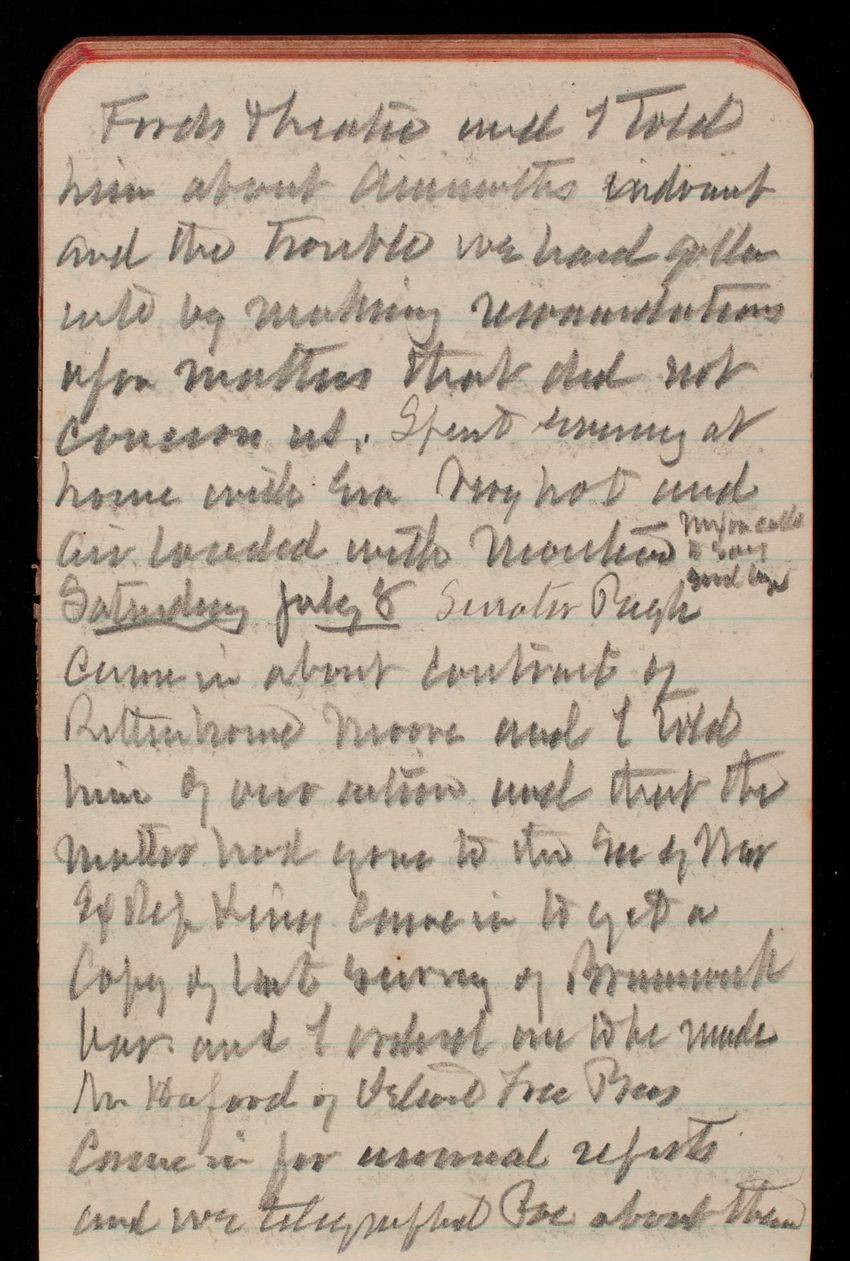 Fords Theatre and I told
him about Ainsworths
and the trouble we had gotten
into by making recomendations
upon matters that did not
concern us. Spent evening at
home with Eva Very hot and
air loaded with Moisture Nixon called
to say
good bye
Saturday July 8 Senator Pugh
Came in about contract of
Rittenhouse Moore and I told
him of our action and that the
matter had gone to the Sec of War
Ex Rep King Came in to get a
Copy of last Survey of Brunswick
bar. and I ordered one to be made
Mr of Detroit Free Press
Came in for annual reports
and we telegraphed Poe about them